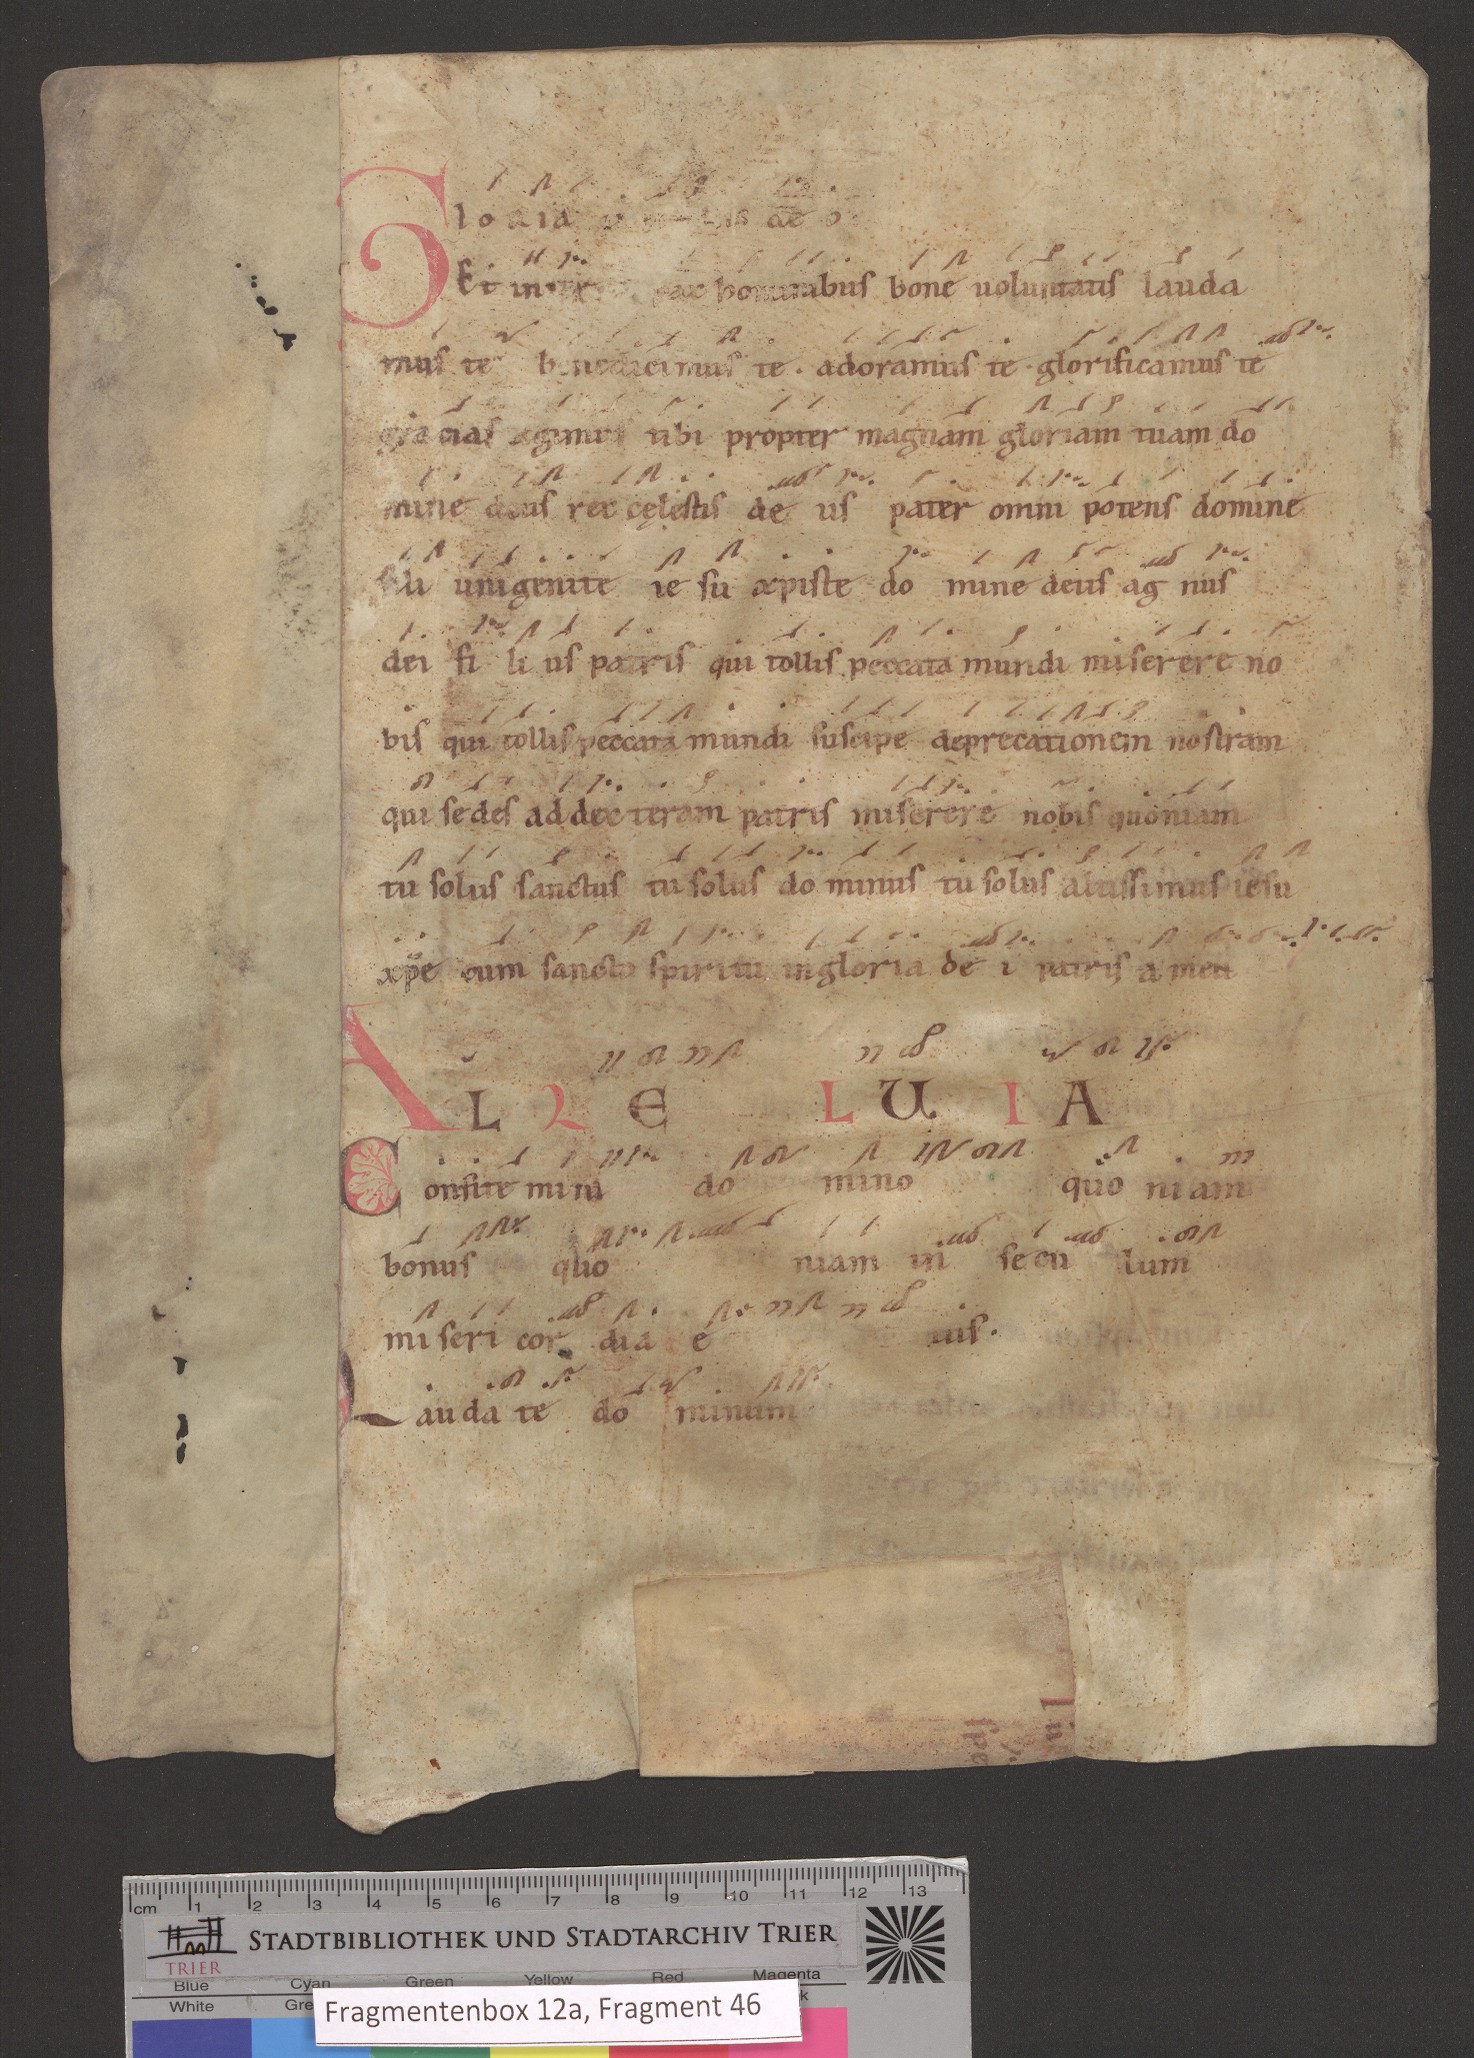 Gloria de o
Et in pax hominibus bone uoluntatis lauda
mus te benedicimus te · adoramus te · glorificamus te
gracias agimus tibi propter magnam gloriam tuam do
mine deus rex cęlestis de us pater omni potens domine
fili unigenite ie su xpiste do mine deus ag nus
dei fi li us patris qui tollis peccata mundi miserere no
bis qui tollis peccata mundi suscipe deprecationem nostram
qui sedes ad dex teram patris miserere nobis quoniam
tu solus sanctus tu solus do minus tu solus altissimus iesu
xpe cum sancto spiritu in gloria de i patris a men
AL L E L U I A
Confite mini do mino quo niam
bonus quo niam in se cu lum
mi seri cor dia e ius.
Lauda te do minum
cm 1 2 3 4 5 6 7 8 9 10 11 12 13
TRIER
STADTBIBLIOTHEK UND STADTARCHIV TRIER
Blue Cyan Green Yellow Red Magenta
White
Fragmentenbox 12a, Fragment 46